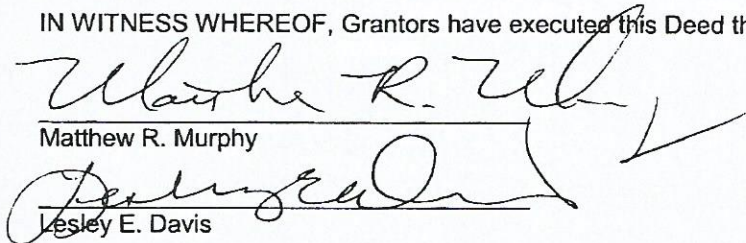 IN WITNESS WHEREOF, Grantors have executed this Deed th
Matthew R. Murphy
Lesley E. Davis